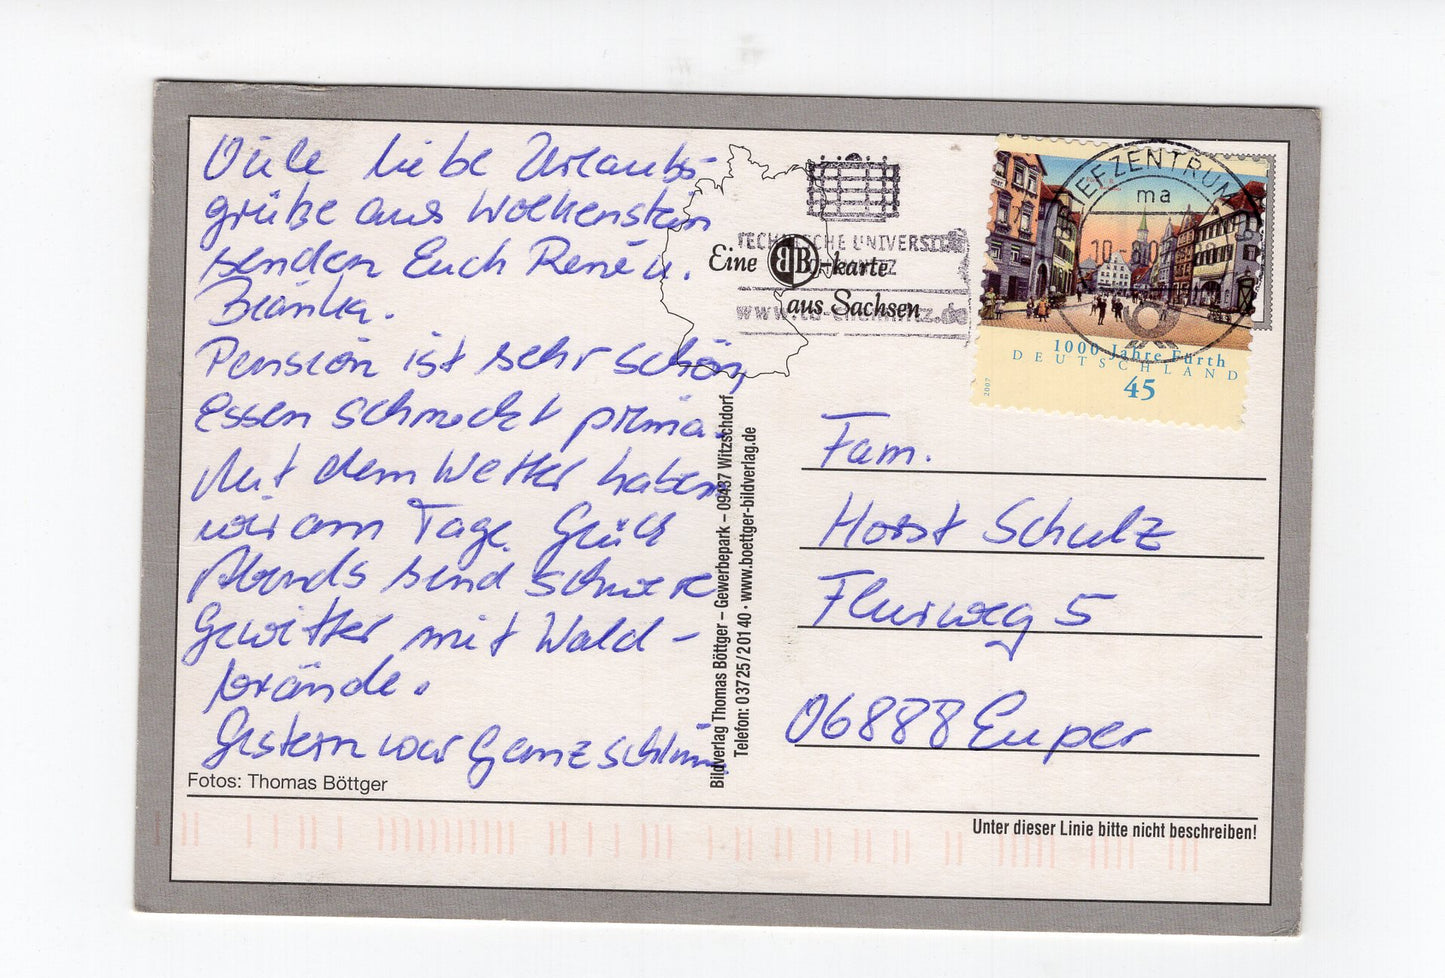 Viele liebe Urlaubs-
grüße aus Wolkenstein
senden Euch René u.
Bianka.
Pension ist sehr schön,
Essen schmeckt prima.
Mit dem Wetter haben
wir am Tage Glück
Abends sind schwere
Gewitter mit Wald-
brände.
Gestern war Ganz schlimm
Fotos: Thomas Böttger
TECHNISCHE UNIVERSITÄT
CHEMNITZ
www.tu-chemnitz.de
Eine BTB-karte
aus Sachsen
Bildverlag Thomas Böttger – Gewerbepark – 09437 Witzschdorf
Telefon: 03725/201 40 · www.boettger-bildverlag.de
BRIEFZENTRUM
ma
1000 Jahre Fürth
DEUTSCHLAND
45
2007
Fam.
Horst Schulz
Flurweg 5
06888 Euper
Unter dieser Linie bitte nicht beschreiben!